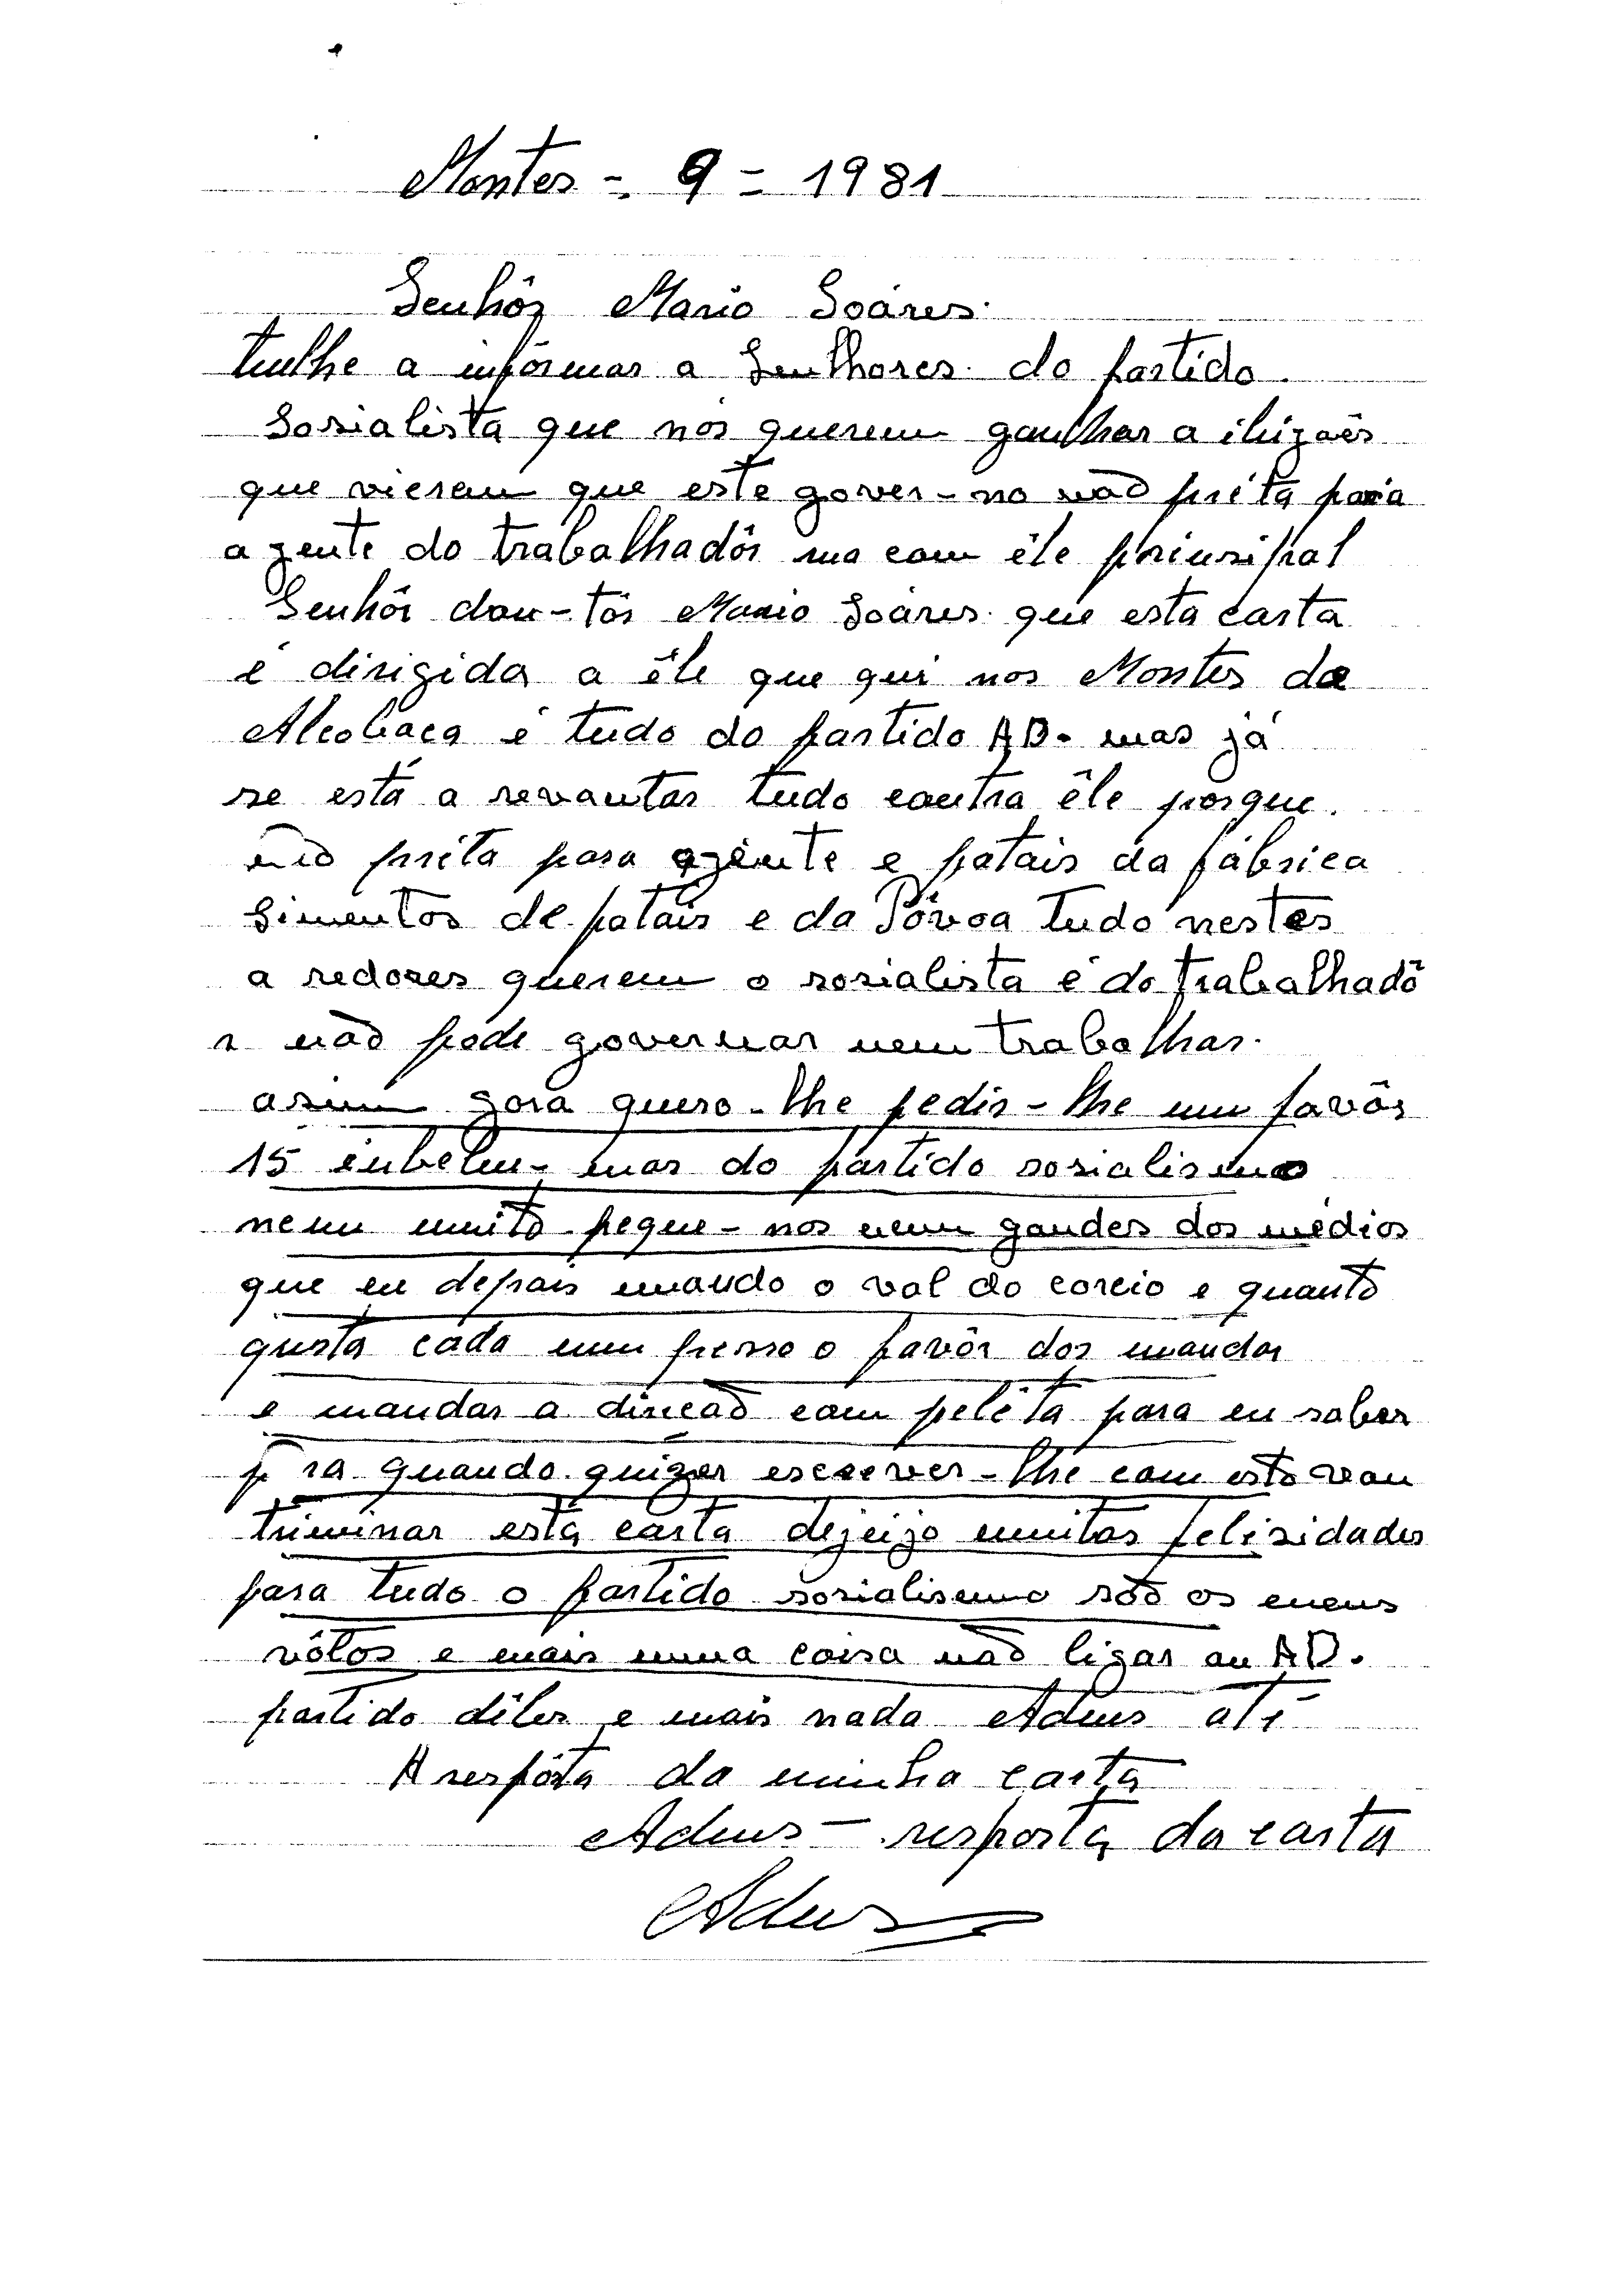 Montes - 9 = 1981
Senhôr Mario Soáres.
tenlhe a infórmar a Senlhores. do partido.
Sosialista que nós querem ganlhar a iliçoês
que vierem que este gover-no naõ préta para
a gente do trabalhadôr ma com êle prinsipal
Senhôr dou-tôr Mario Soáres. que esta carta
é dirigida a êle que qui nos Montes da
Alcobaca é tudo do partido AD. mas já
se está a revantar tudo contra êle porque.
naõ préta para agênte e patais da fábrica
Simentos de patais e da Póvoa tudo nestes
a redores querem o sosialista é do trabalhadô
r naõ pode governar nem trabalhar.
asim gora quero-lhe pedir-lhe um favôr
15 inbelm-mar do partido sosialismo
nem muito peque-nos nem gandes dos médios
que eu depais mando o val do coreio e quanto
qusta cada um pesso o favôr dos mandar
e mandar a direcaõ com peléta para eu saber
p ra quando quizer escerver-lhe com esta vou
triminar esta carta dejeijo muitas felisidades
para tudo o partido sosialismo saõ os meus
vôtos e mais uma coisa naõ ligar au AD.
partido dêles e mais nada Adeus até
A respósta da minha carta
Adeus - resposta da carta
Adeus